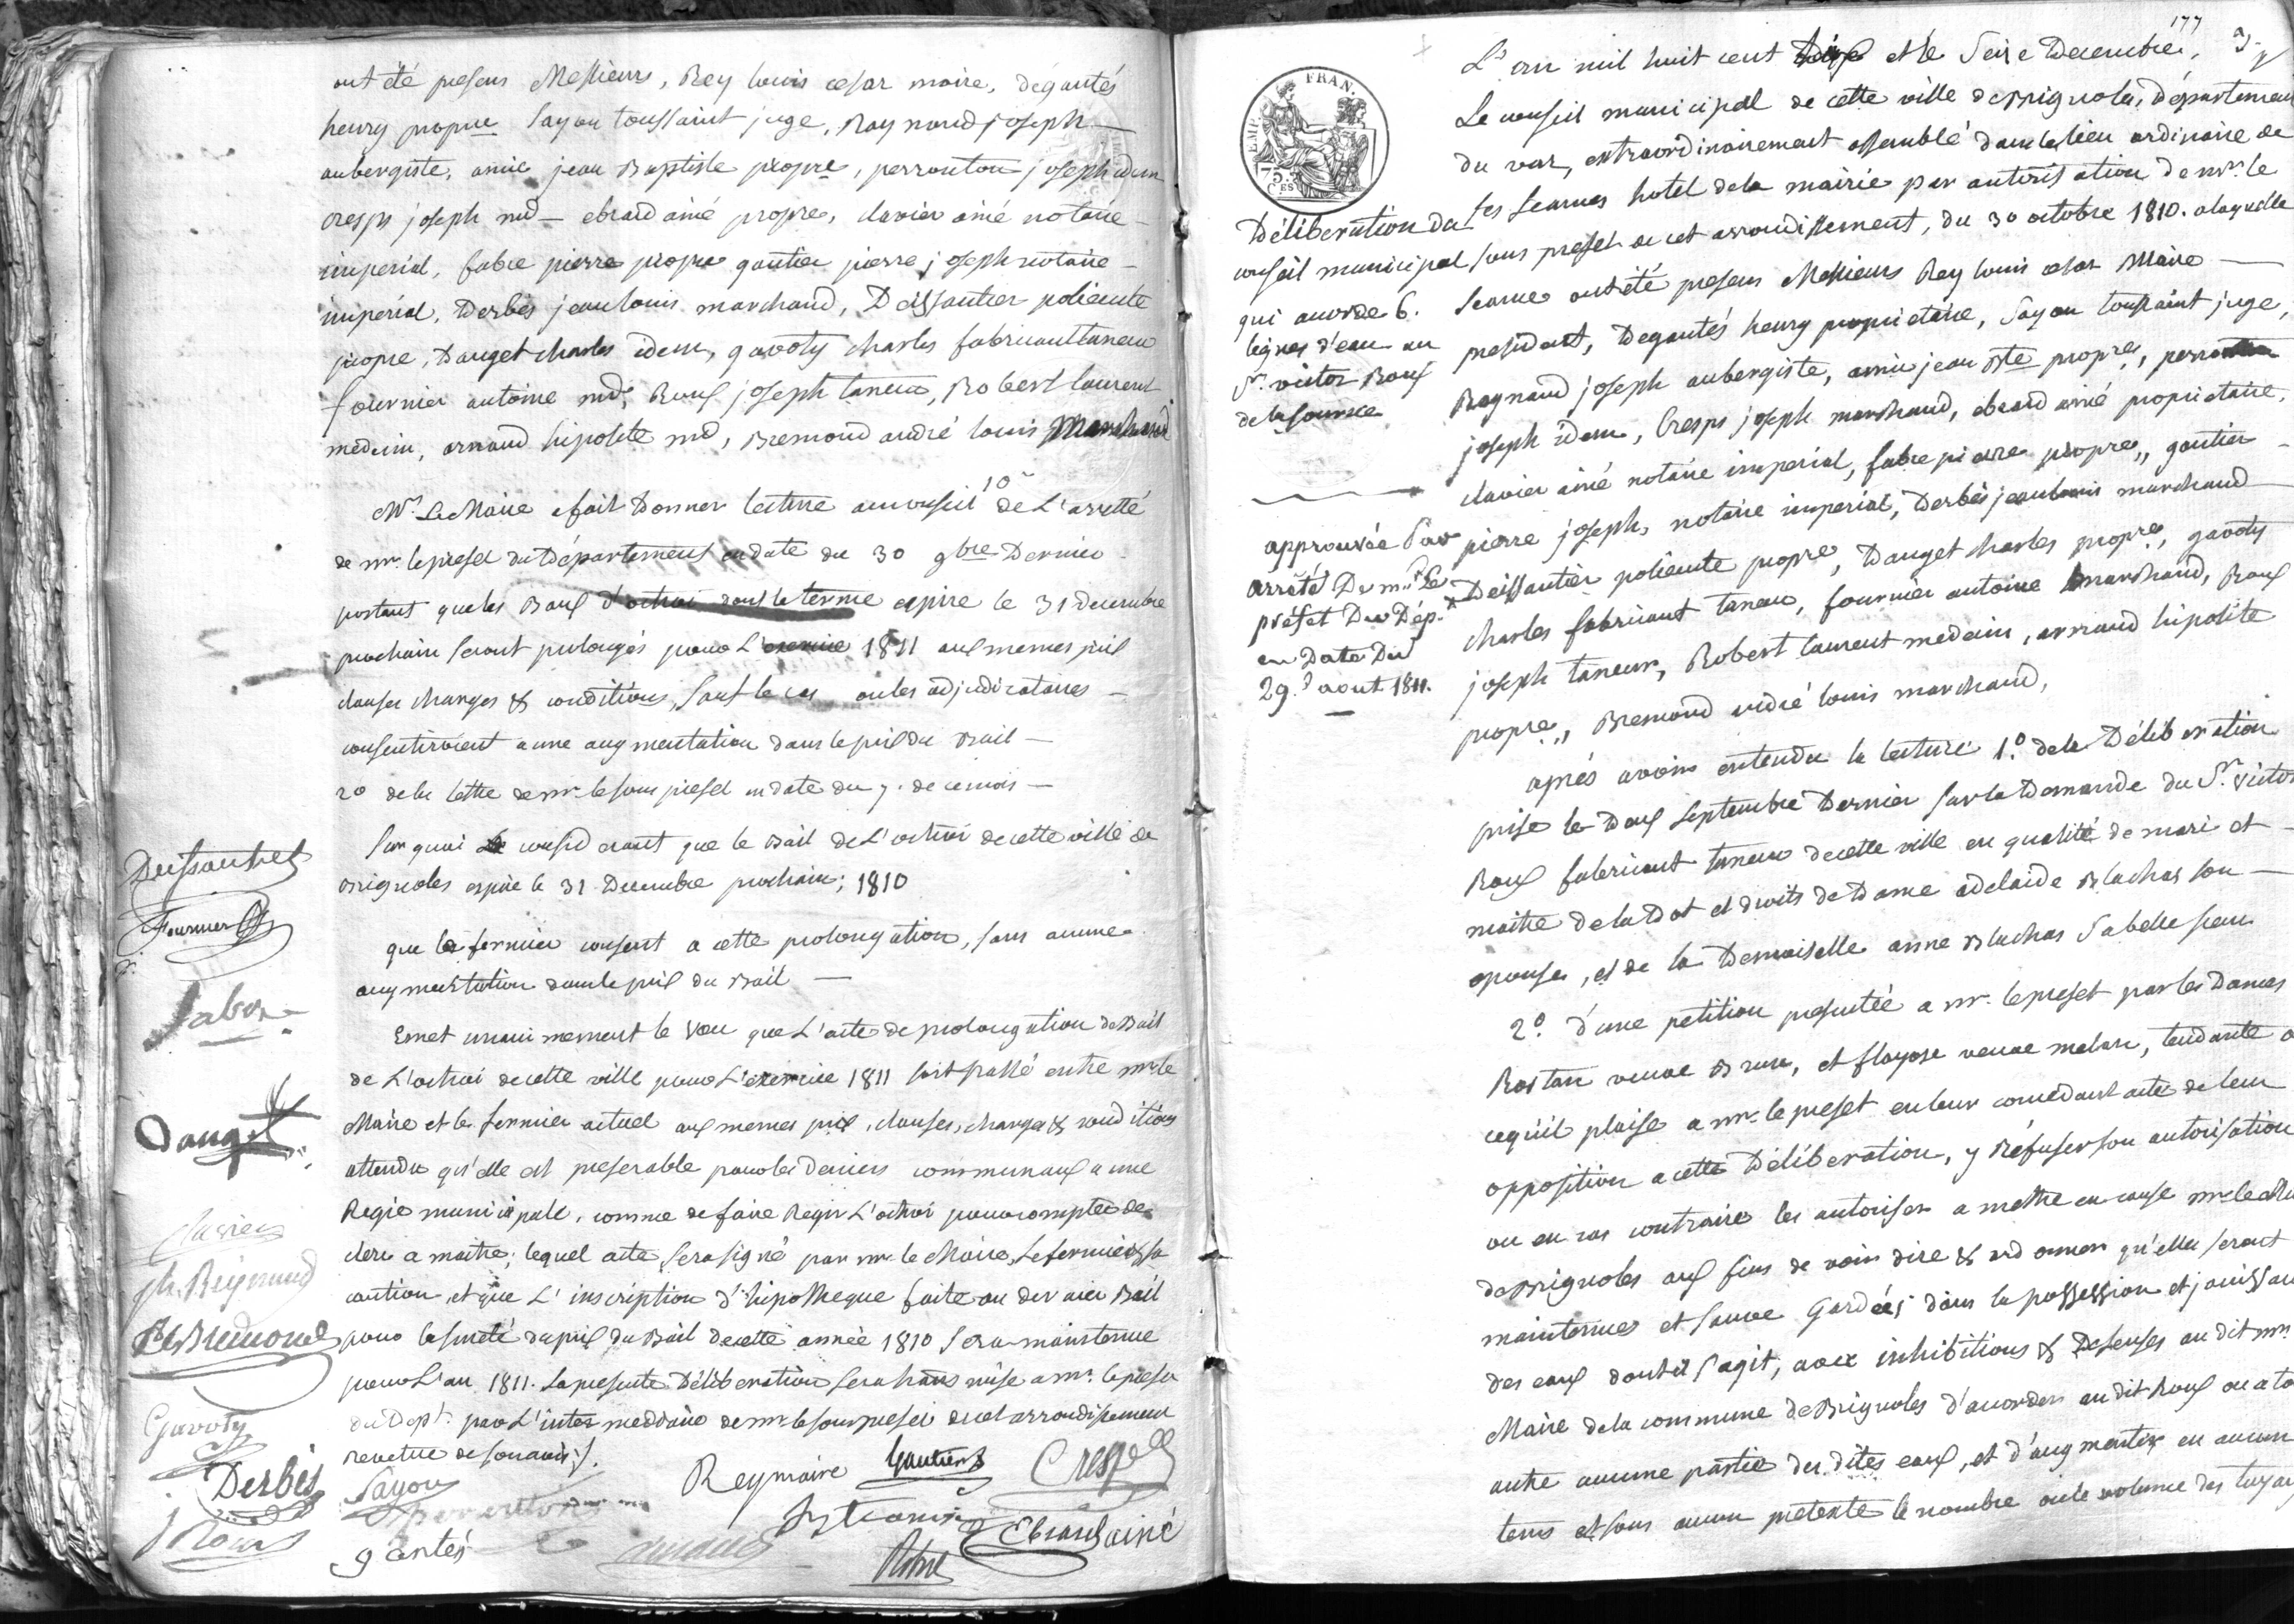 ont été presens Messieurs, Rey louis cesar maire, dégantés
henry propre Sayou toussaint juge, Raynaud joseph
aubergiste, amic jean Baptiste propre, perronton joseph idem
Cresps joseph md ebrard ainé propre, clavier ainé notaire
imperial, fabre pierre propre gautier pierre joseph notaire
imperial, Derbes jean louis marchand, Deissautier polieucte
propre, Dauget charles idem, gavoty charles fabricant taneur
fournier antoine md, Roux joseph taneur, Robert laurent
medecin, arnaud hipolite md, Bremond andré louis Marchand
Mr. Le Maire a fait Donner lecture au conseil 1° de L'arretté
de mr. le prefet du Département en date du 30 9bre Dernier
portant que les Baux d'octroi dont le terme expire le 31 decembre
prochain seront prolongés pour L'exercice 1811 aux memes prix
clauses charges & conditions, sauf le cas ou les adjudicataires
consentiroient a une augmentation dans le prix du Bail
2° de la lettre de mr. le sous prefet en date du 7. de ce mois
Sur quoi considerant que le Bail de L'octroi de cette ville de
Brignoles expire le 31 Decembre prochain; 1810
que le fermier consent a cette prolongation, sans aucune
augmentation dans le prix du Bail
Emet unanimement le voeu que L'acte de prolongation de Bail
de L'octroi de cette ville pour L'exercice 1811 soit passé entre mr. le
Maire et le fermier actuel aux memes prix, clauses, charges & conditions
attendu qu'elle est preferable pour les deniers communaux a une
Regie municipale, comme de faire Regir L'octroi pour compte de
clerc a maitre; lequel acte sera signé par mr. le Maire, le fermier & sa
caution, et que L'inscription d'hipotheque faite au dernier Bail
pour la sureté du prix du Bail de cette année 1810 sera maintenue
pour L'an 1811. La presente Délibération sera transmise a mr. le prefet
du Dept. par L'intermeddiaire de mr. le sous prefet de cet arrondissement
revetue de son avis ./.
Deissautier
Fournier
fabre
Dauget
Clavier
jh. Reynaud
Bremond
Gavoty
Derbès
Sayou
Rey maire
Gautier
Cresps
j Roux
perronton
gantés
arnaud
Robert
Ebrard ainé
177
L'an mil huit cent dix et le Seize Decembre,
Le conseil municipal de cette ville de Brignoles, Département
du var, extraordinairement assemblé dans le lieu ordinaire de
ses seances hotel de la mairie par autorisation de mr. le
sous prefet de cet arrondissement, du 30 octobre 1810. a laquelle
seance ont été presens Messieurs Rey louis cesar Maire
president, Degantés henry proprietaire, Sayou toussaint juge,
Raynaud joseph aubergiste, amic jean Bte propre, perronton
joseph idem, Cresps joseph marchand, ebrard ainé proprietaire,
clavier ainé notaire imperial, fabre pierre propre, gautier
pierre joseph, notaire imperial, Derbès jean louis marchand
Deissautier polieucte propre, Dauget charles propre, gavoty
charles fabricant taneur, fournier antoine marchand, Roux
joseph taneur, Robert laurent medecin, arnaud hipolite
propre, Bremond andré louis marchand,
FRAN.
EMP.
75.
C.ES
Déliberation du
conseil municipal
qui accorde 6.
lignes d'eau au
Sr. victor Roux
de la source
approuvée Par
arrêté De mr. Le
préfet Du Dép.t
en Date Du
29. aout 1811.
aprés avoir entendu la lecture 1.° de la Délibération
prise le deux Septembre Dernier sur la Demande du Sr. victor
Roux fabricant taneur de cette ville en qualité de mari et
maitre de la Dot et droits de Dame adelaide Blachas son
epouse, et de la Demoiselle anne Blachas Sa belle sœur
2°. d'une petition presentée a mr. le prefet par les Dames
Rostan veuve Brun, et flayosc veuve, tendante a
cequ'il plaise a mr. le prefet en leur concedant acte de leur
opposition a cette Délibération, y Réfuser son autorisation
ou en cas contraire les autoriser a mettre en cause mr. le Maire
de Brignoles aux fins de voir dire & ordonner qu'elles seront
maintenues et sauve Gardées dans la possession et jouissance
des eaux dont il s'agit, avec inhibitions & Defenses au dit mr.
Maire de la commune de Brignoles d'accorder au dit Roux ou a tout
autre aucune partie des dites eaux, et d'augmenter en aucun
tems et sous aucun pretexte le nombre ou le volume des tuyaux